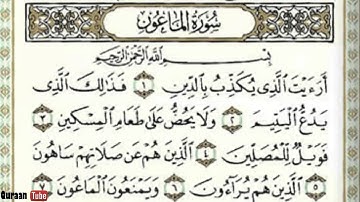 سُورَةُ المَاعُونِ
بِسْمِ اللَّهِ الرَّحْمَٰنِ الرَّحِيمِ
أَرَءَيْتَ الَّذِي يُكَذِّبُ بِالدِّينِ ١ فَذَٰلِكَ الَّذِي
يَدُعُّ الْيَتِيمَ ٢ وَلَا يَحُضُّ عَلَىٰ طَعَامِ الْمِسْكِينِ ٣
فَوَيْلٌ لِّلْمُصَلِّينَ ٤ الَّذِينَ هُمْ عَن صَلَاتِهِمْ سَاهُونَ
٥ الَّذِينَ هُمْ يُرَاءُونَ ٦ وَيَمْنَعُونَ الْمَاعُونَ ٧
Quraan Tube